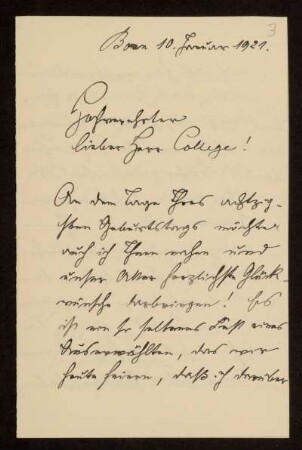 3
Bonn 10. Januar 1921.
Hochverehrter
lieber Herr College!
An dem Tage Ihres achtzig-
sten Geburtstags möchte
auch ich Ihnen nahen und
unser Aller herzlichste Glück-
wünsche darbringen! Es
ist ein so seltenes Fest eines
Auserwählten, das wir
heute feiern, daß ich darüber